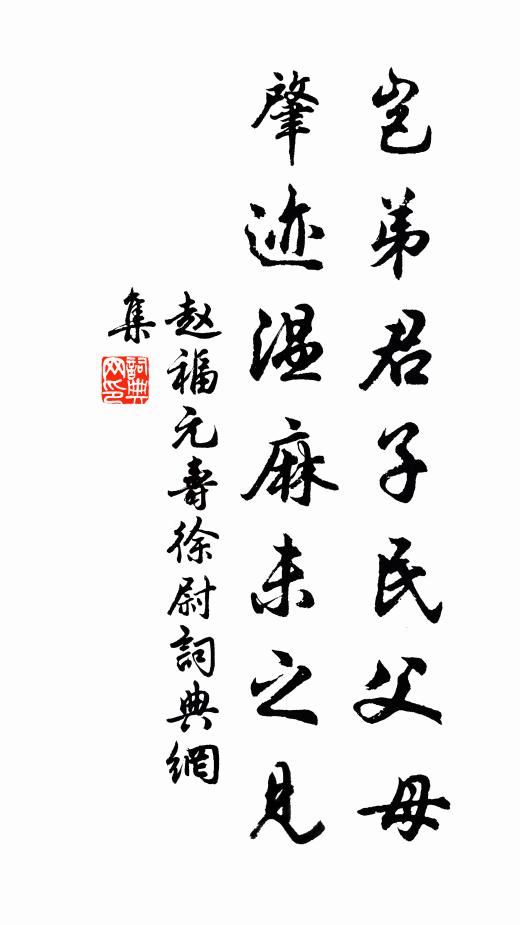 岂弟君子民父母
肇迹温麻未之见
赵福元寿徐尉詞典網
集
詞典
网印